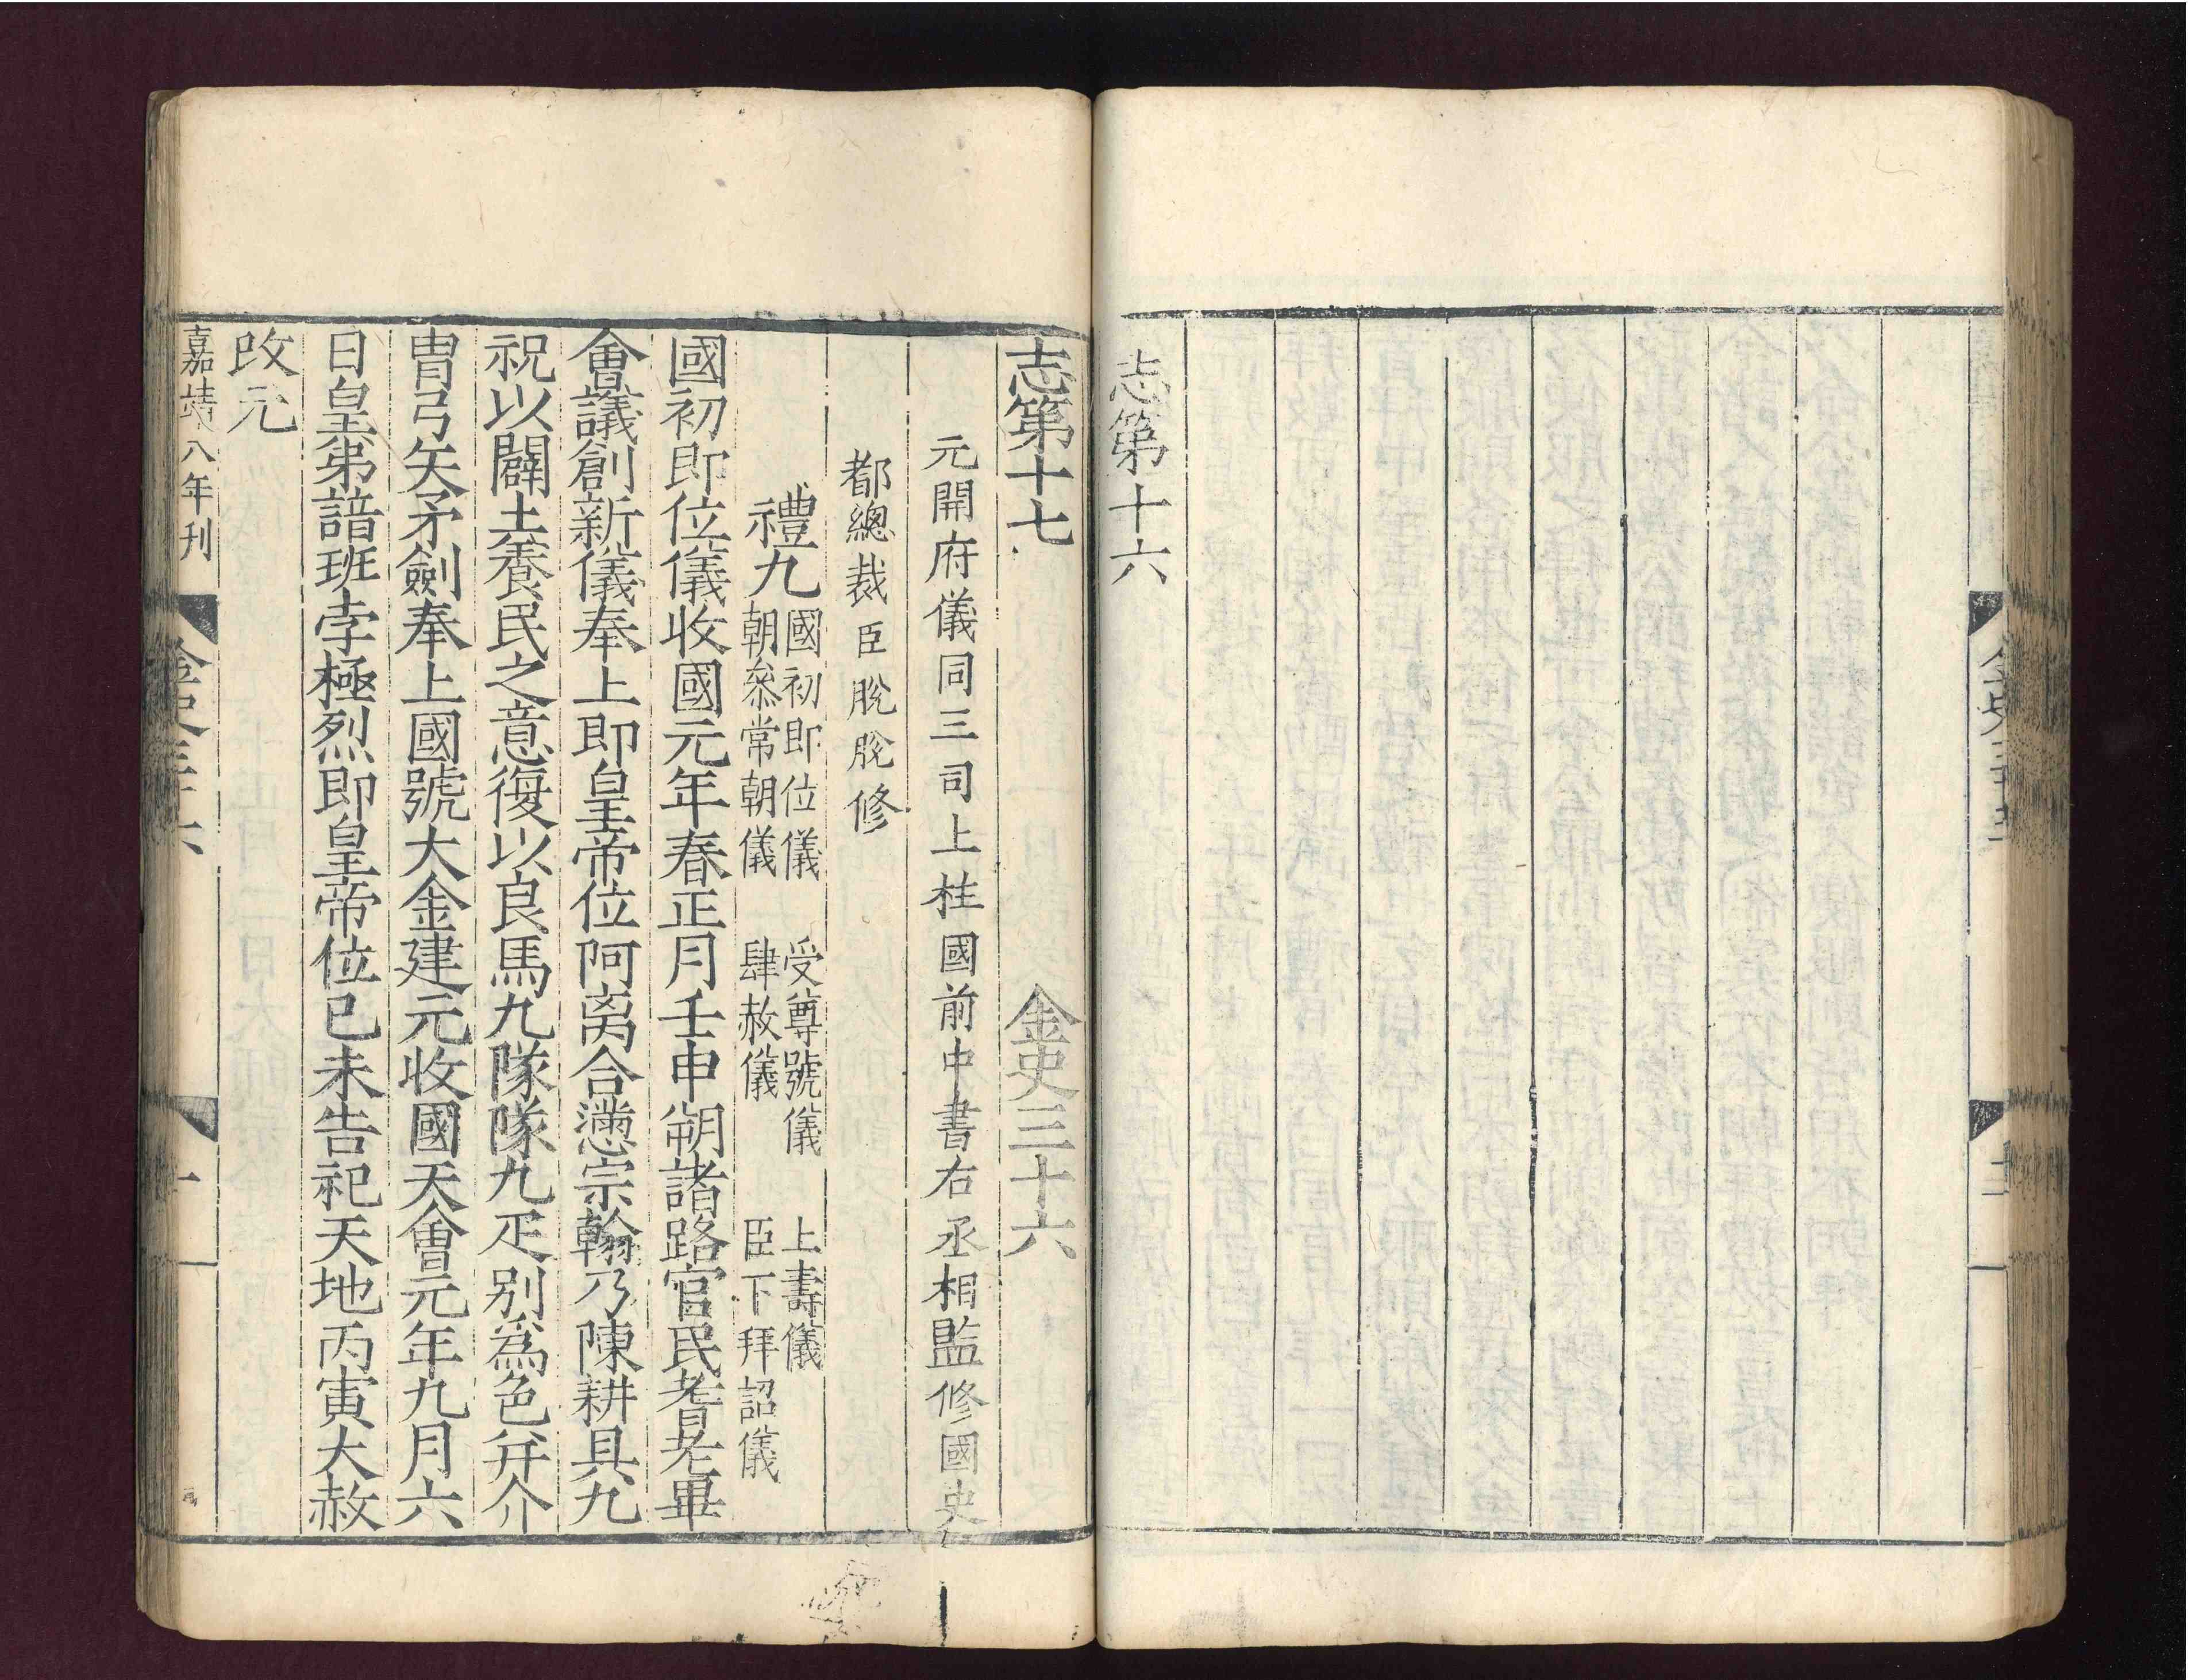 金史三十五
十二
志第十六
志第十七 金史三十六
元開府儀同三司上柱國前中書右丞相監修國史
都總裁臣脫脫修
禮九 國初即位儀 受尊號儀 上壽儀
朝叅常朝儀 肆赦儀 臣下拜詔儀
國初即位儀收國元年春正月壬申朔諸路官民耆老畢
會議創新儀奉上即皇帝位阿离合懣宗翰乃陳耕具九
祝以闢土養民之意復以良馬九隊隊九疋别爲色并介
冑弓矢矛劒奉上國號大金建元收國天會元年九月六
日皇弟諳班孛極烈即皇帝位已未告祀天地丙寅大赦
改元
嘉靖八年刊
金史三十六
一